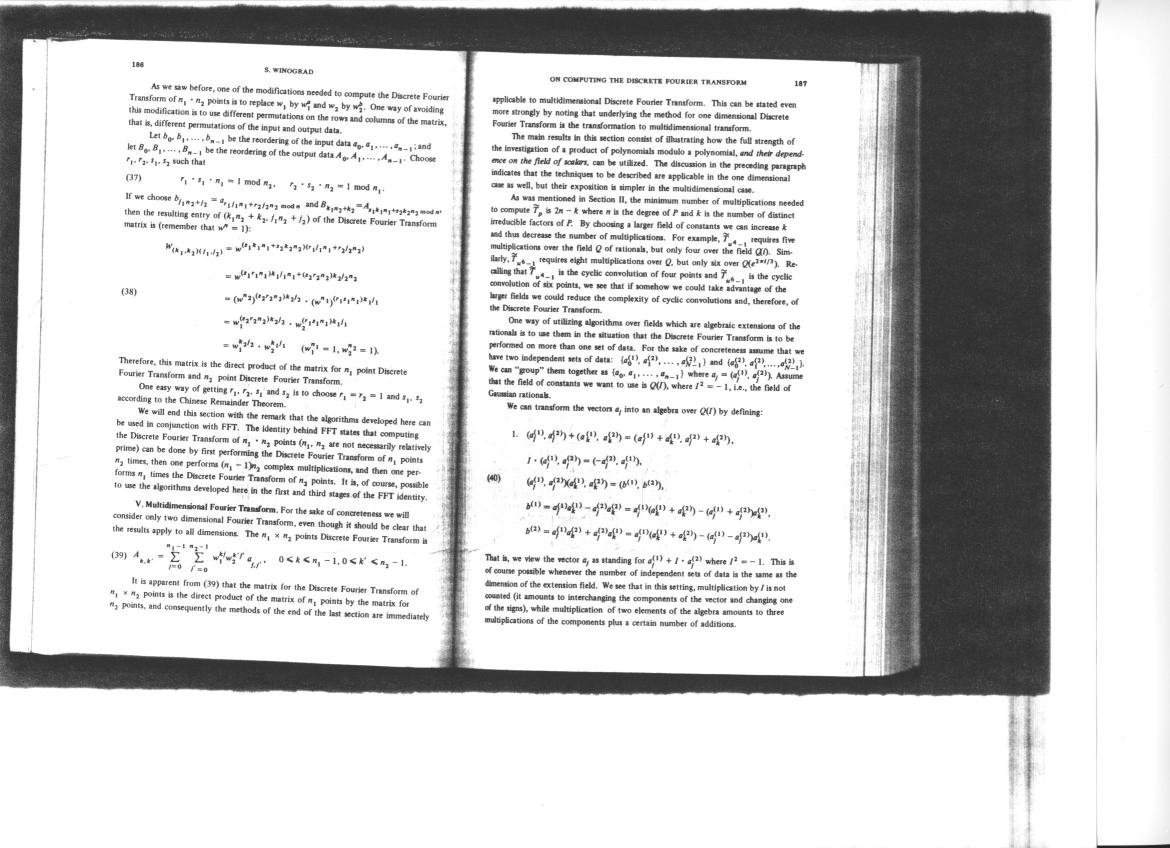 186
S. WINOGRAD
As we saw before, one of the modifications needed to compute the Discrete Fourier
Transform of n₁ · n₂ points is to replace w₁ by w₁ᵃ and w₂ by w₂ᵇ. One way of avoiding
this modification is to use different permutations on the rows and columns of the matrix,
that is, different permutations of the input and output data.
Let b₀, b₁, . . . , bₙ₋₁ be the reordering of the input data a₀, a₁, . . . , aₙ₋₁; and
let B₀, B₁, . . . , Bₙ₋₁ be the reordering of the output data A₀, A₁, . . . , Aₙ₋₁. Choose
r₁, r₂, s₁, s₂ such that
(37) r₁ · s₁ · n₁ = 1 mod n₂, r₂ · s₂ · n₂ = 1 mod n₁.
If we choose b_{l₁n₂+l₂} = a_{r₁l₁n₁+r₂l₂n₂ mod n} and B_{k₁n₂+k₂} = A_{s₁k₁n₁+s₂k₂n₂ mod n},
then the resulting entry of (k₁n₂ + k₂, l₁n₂ + l₂) of the Discrete Fourier Transform
matrix is (remember that wⁿ = 1):
W_{(k₁,k₂)(l₁,l₂)} = w^{(s₁k₁n₁+s₂k₂n₂)(r₁l₁n₁+r₂l₂n₂)}
= w^{(s₁r₁n₁)k₁l₁n₁+(s₂r₂n₂)k₂l₂n₂}
(38) = (w^{n₂})^{(s₂r₂n₂)k₂l₂} · (w^{n₁})^{(r₁s₁n₁)k₁l₁}
= w₁^{(s₂r₂n₂)k₂l₂} · w₂^{(r₁s₁n₁)k₁l₁}
= w₁^{k₂l₂} · w₂^{k₁l₁} (w₁^{n₁} = 1, w₂^{n₂} = 1).
Therefore, this matrix is the direct product of the matrix for n₁ point Discrete
Fourier Transform and n₂ point Discrete Fourier Transform.
One easy way of getting r₁, r₂, s₁ and s₂ is to choose r₁ = r₂ = 1 and s₁, s₂
according to the Chinese Remainder Theorem.
We will end this section with the remark that the algorithms developed here can
be used in conjunction with FFT. The identity behind FFT states that computing
the Discrete Fourier Transform of n₁ · n₂ points (n₁, n₂ are not necessarily relatively
prime) can be done by first performing the Discrete Fourier Transform of n₁ points
n₂ times, then one performs (n₁ − 1)n₂ complex multiplications, and then one per-
forms n₁ times the Discrete Fourier Transform of n₂ points. It is, of course, possible
to use the algorithms developed here in the first and third stages of the FFT identity.
V. Multidimensional Fourier Transform. For the sake of concreteness we will
consider only two dimensional Fourier Transform, even though it should be clear that
the results apply to all dimensions. The n₁ × n₂ points Discrete Fourier Transform is
(39) A_{k,k'} = Σ_{l=0}^{n₁−1} Σ_{l'=0}^{n₂−1} w₁^{kl} w₂^{k'l'} a_{l,l'}, 0 ⩽ k ⩽ n₁ − 1, 0 ⩽ k' ⩽ n₂ − 1.
It is apparent from (39) that the matrix for the Discrete Fourier Transform of
n₁ × n₂ points is the direct product of the matrix of n₁ points by the matrix for
n₂ points, and consequently the methods of the end of the last section are immediately
ON COMPUTING THE DISCRETE FOURIER TRANSFORM
187
applicable to multidimensional Discrete Fourier Transform. This can be stated even
more strongly by noting that underlying the method for one dimensional Discrete
Fourier Transform is the transformation to multidimensional transform.
The main results in this section consist of illustrating how the full strength of
the investigation of a product of polynomials modulo a polynomial, and their depend-
ence on the field of scalars, can be utilized. The discussion in the preceding paragraph
indicates that the techniques to be described are applicable in the one dimensional
case as well, but their exposition is simpler in the multidimensional case.
As was mentioned in Section II, the minimum number of multiplications needed
to compute T̃_p is 2n − k where n is the degree of P and k is the number of distinct
irreducible factors of P. By choosing a larger field of constants we can increase k
and thus decrease the number of multiplications. For example, T̃_{u⁴−1} requires five
multiplications over the field Q of rationals, but only four over the field Q(i). Sim-
ilarly, T̃_{u⁶−1} requires eight multiplications over Q, but only six over Q(e^{2πi/3}). Re-
calling that T̃_{u⁴−1} is the cyclic convolution of four points and T̃_{u⁶−1} is the cyclic
convolution of six points, we see that if somehow we could take advantage of the
larger fields we could reduce the complexity of cyclic convolutions and, therefore, of
the Discrete Fourier Transform.
One way of utilizing algorithms over fields which are algebraic extensions of the
rationals is to use them in the situation that the Discrete Fourier Transform is to be
performed on more than one set of data. For the sake of concreteness assume that we
have two independent sets of data: {a₀⁽¹⁾, a₁⁽¹⁾, . . . , a_{N−1}⁽¹⁾} and {a₀⁽²⁾, a₁⁽²⁾, . . . , a_{N−1}⁽²⁾}.
We can "group" them together as {a₀, a₁, . . . , aₙ₋₁} where a_j = (a_j⁽¹⁾, a_j⁽²⁾). Assume
that the field of constants we want to use is Q(I), where I² = − 1, i.e., the field of
Gaussian rationals.
We can transform the vectors a_j into an algebra over Q(I) by defining:
1. (a_j⁽¹⁾, a_j⁽²⁾) + (a_k⁽¹⁾, a_k⁽²⁾) = (a_j⁽¹⁾ + a_k⁽¹⁾, a_j⁽²⁾ + a_k⁽²⁾),
I · (a_j⁽¹⁾, a_j⁽²⁾) = (−a_j⁽²⁾, a_j⁽¹⁾),
(40) (a_j⁽¹⁾, a_j⁽²⁾)(a_k⁽¹⁾, a_k⁽²⁾) = (b⁽¹⁾, b⁽²⁾),
b⁽¹⁾ = a_j⁽¹⁾a_k⁽¹⁾ − a_j⁽²⁾a_k⁽²⁾ = a_j⁽¹⁾(a_k⁽¹⁾ + a_k⁽²⁾) − (a_j⁽¹⁾ + a_j⁽²⁾)a_k⁽²⁾,
b⁽²⁾ = a_j⁽¹⁾a_k⁽²⁾ + a_j⁽²⁾a_k⁽¹⁾ = a_j⁽¹⁾(a_k⁽¹⁾ + a_k⁽²⁾) − (a_j⁽¹⁾ − a_j⁽²⁾)a_k⁽¹⁾.
That is, we view the vector a_j as standing for a_j⁽¹⁾ + I · a_j⁽²⁾ where I² = − 1. This is
of course possible whenever the number of independent sets of data is the same as the
dimension of the extension field. We see that in this setting, multiplication by I is not
counted (it amounts to interchanging the components of the vector and changing one
of the signs), while multiplication of two elements of the algebra amounts to three
multiplications of the components plus a certain number of additions.